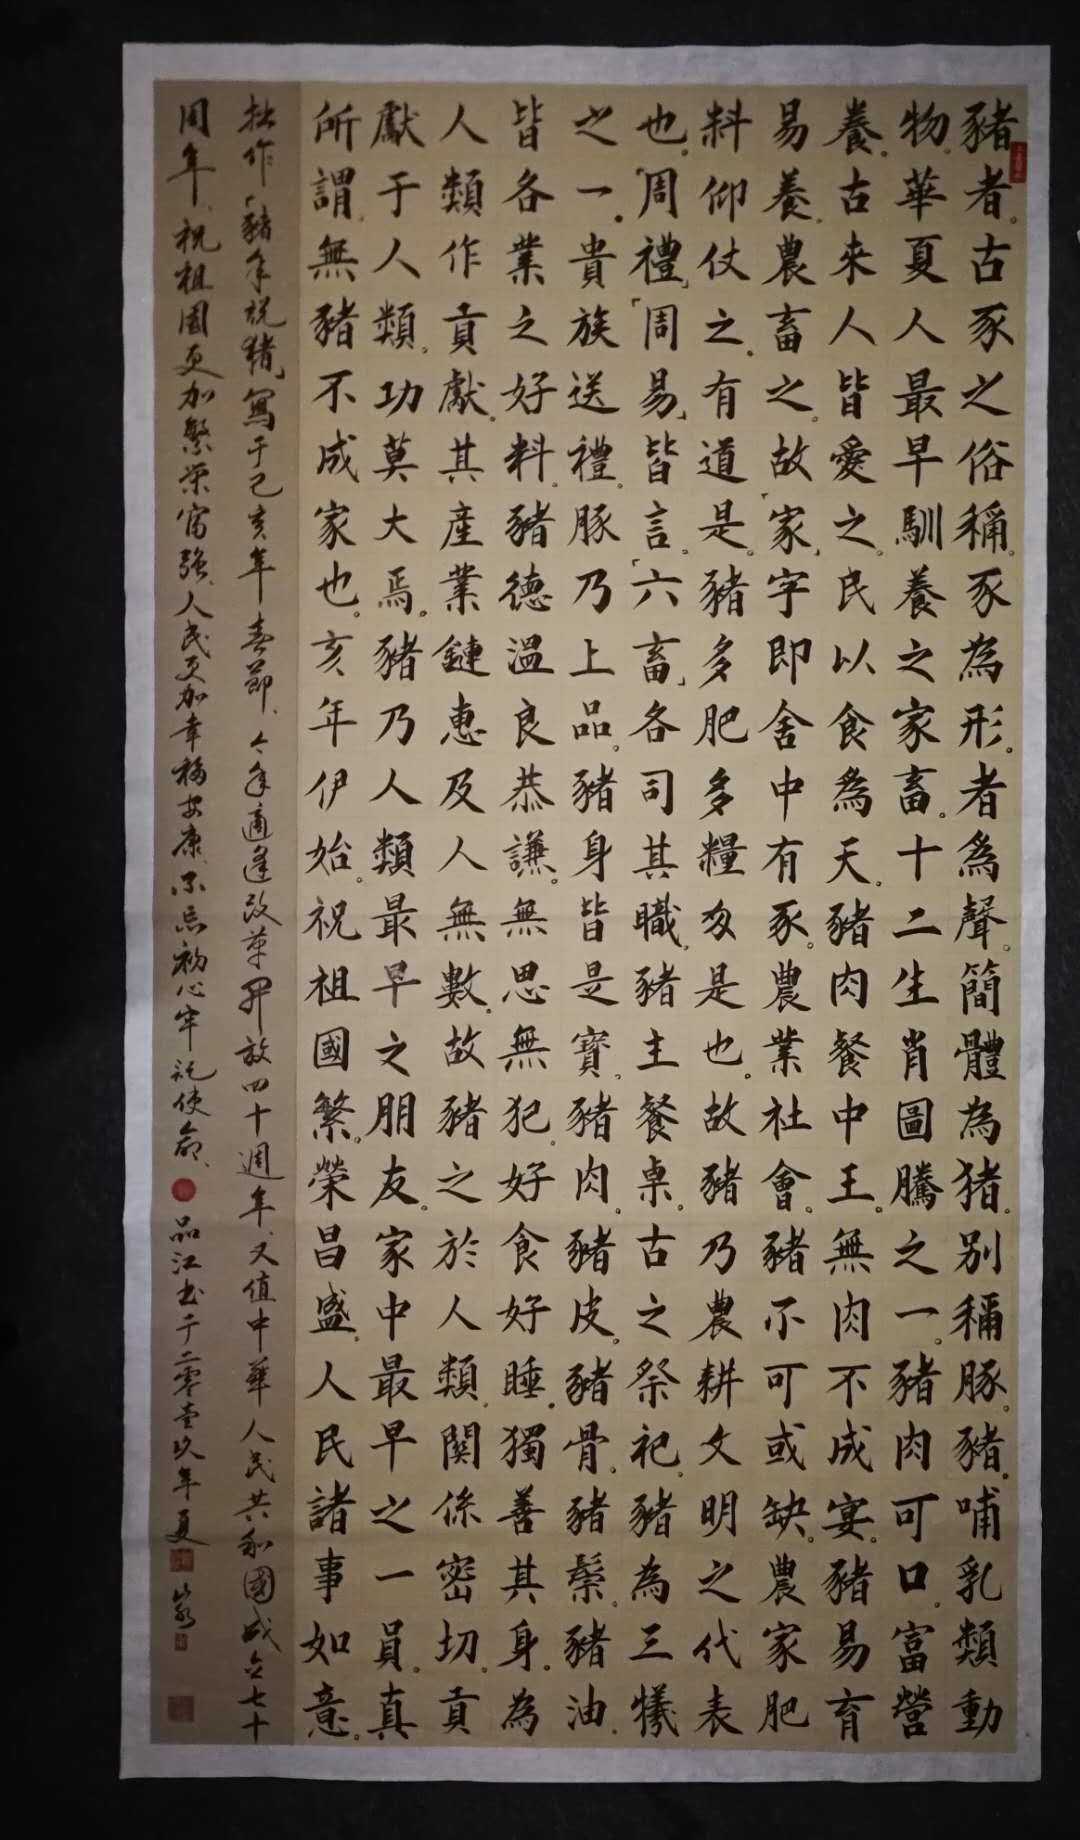 豬者。古豕之俗稱。豕為形。者為聲。簡體為猪。别稱豚。豬。哺乳類動
物。華夏人最早馴養之家畜。十二生肖圖騰之一。豬肉可口。富營
養。古來人皆愛之。民以食為天。豬肉餐中王。無肉不成宴。豬易育
易養。農畜之。故「家」字即舍中有豕。農業社會。豬不可或缺。農家肥
料仰仗之。有道是。豬多肥多糧多是也。故豬乃農耕文明之代表
也。「周禮」「周易」皆言。「六畜」各司其職。豬主餐桌。古之祭祀。豬為三犧
之一。貴族送禮。豚乃上品。豬身皆是寶。豬肉。豬皮。豬骨。豬鬃。豬油。
皆各業之好料。豬德溫良恭謙。無思無犯。好食好睡。獨善其身。為
人類作貢獻。其產業鏈惠及人無數。故豬之於人類。関係密切。貢
獻于人類。功莫大焉。豬乃人類最早之朋友。家中最早之一員。真
所謂。無豬不成家也。亥年伊始。祝祖國繁榮昌盛。人民諸事如意。
拙作「豬年說猪」寫于己亥年春節、今年適逢改革開放四十週年、又值中華人民共和國成立七十
周年、祝祖國更加繁榮富強、人民更加幸福安康、不忘初心牢記使命、
品江书于二零壹玖年夏